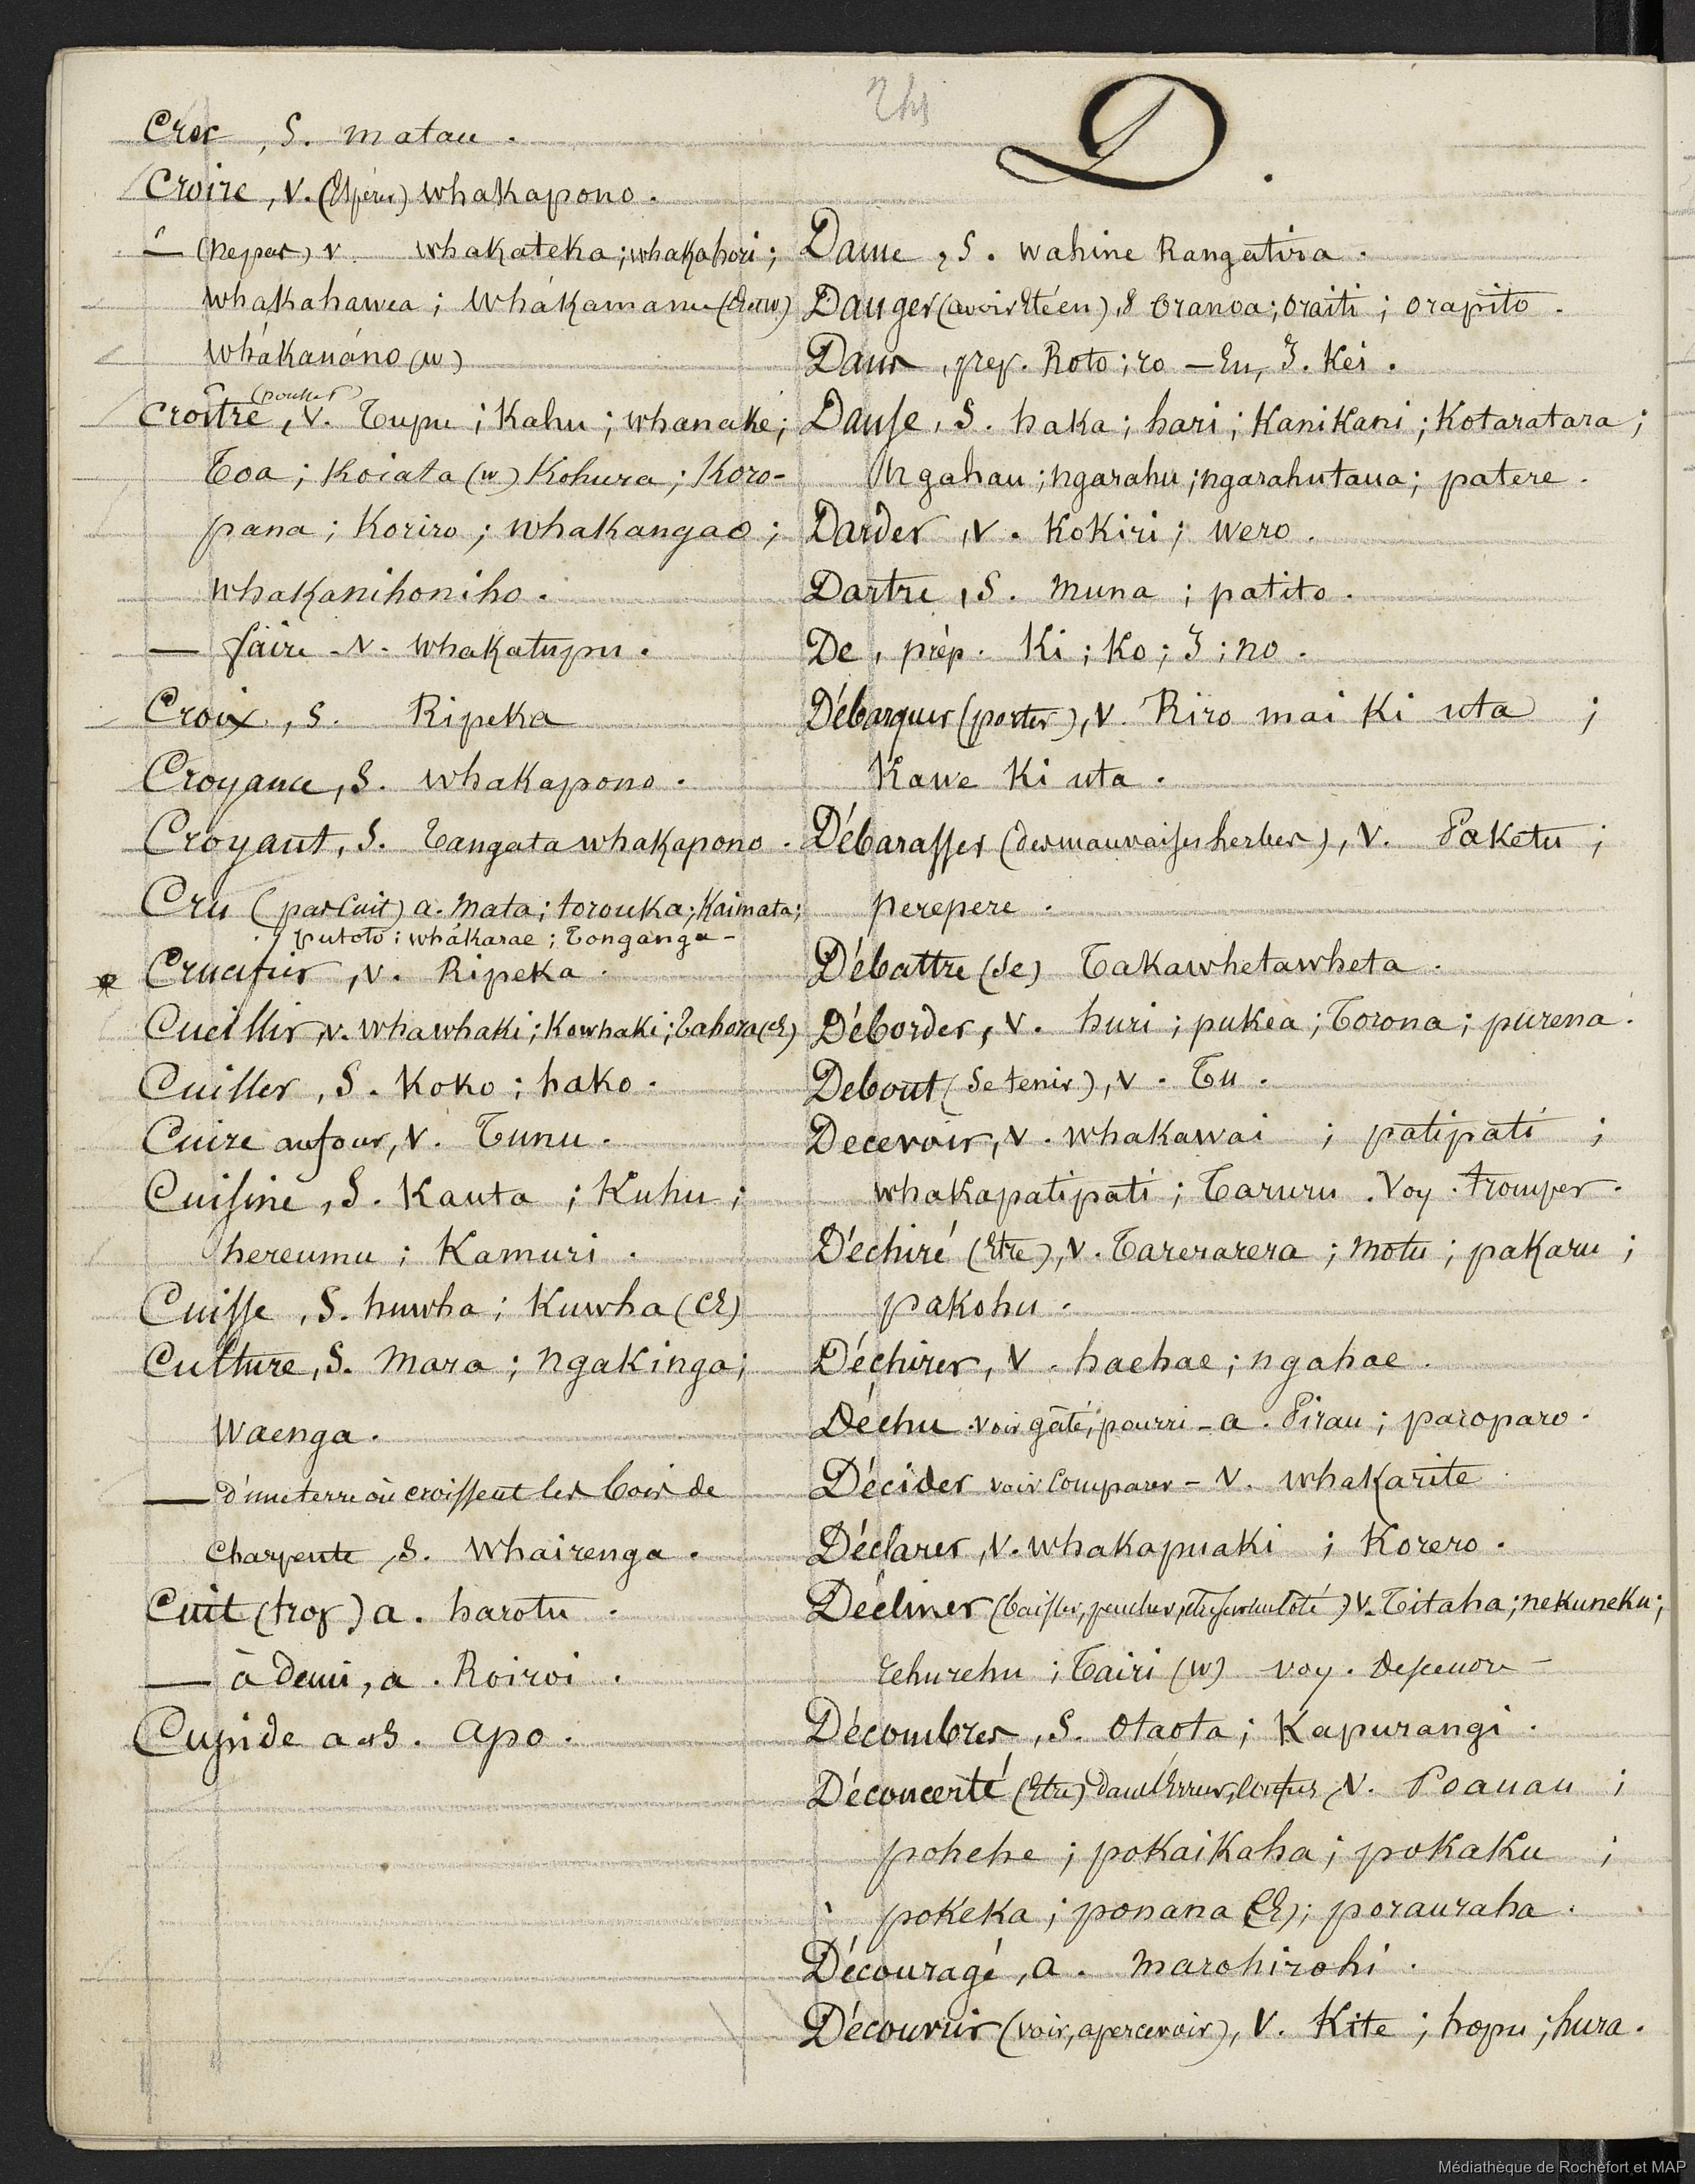 Croc, S. matau.
Croire, V. (Espérer) whakapono.
— (ne pas) v. whakateka; whakahori;
whakahawea; whákamanu
whákanáno (w)
(pousser)
Croître, V. Tupu; Kahu; whanake;
Toa; Koiata (w) Kohura; Koro-
pana; Koriro; whakangao;
whakanihoniho.
— faire - V. whakatupu.
Croix, S. Ripeka
Croyance, S. whakapono.
Croyant, S. Tangata whakapono.
Cru (pas Cuit) a. Mata; torouka; Kaimata;
putoto; whákarae; Tonganga-
Crucifier, v. Ripeka.
Cueillir, v. whawhaki; Kowhaki; Tahora (CE)
Cuiller, S. Koko; hako.
Cuire au four, V. Tunu.
Cuisine, S. Kauta; Kuhu;
hereumu; Kamuri.
Cuisse, S. huwha; Kuwha (CE)
Culture, S. Mara; Ngakinga;
Waenga.
— d'une terre où croissent les bois de
Charpente, S. Whairenga.
Cuit (trop) a. harotu.
— à demi, a. Roiroi.
Cupide a et S. Apo.
24
D.
Dame, S. Wahine Rangatira.
Danger (avoir été en), S Oranoa; Oraiti; Orapito.
Dans, prep. Roto; ro — En, I. Kei.
Danse, S. haka; hari; Kanikani; Kotaratara;
Ngahau; ngarahu; ngarahutaua; patere.
Darder, V. Kokiri; Wero.
Dartre, S. Muna; patito.
De, prép. Ki; Ko; I; no.
Débarquer (porter), V. Riro mai Ki uta;
Kawe Ki uta.
Débarasser (des mauvaises herbes), V. Paketu;
perepere.
Débattre (Se) Takawhetawheta.
Déborder, V. huri; pukea; Torona; purena.
Debout (Se tenir), V. Tu.
Decevoir, V. whakawai; patipati;
whakapatipati; Taruru. Voy. tromper.
Déchiré (Etre), V. Tarerarera; Motu; pakaru;
pakohu.
Déchirer, V. haehae; ngahae.
Déchu voir gâté, pourri - a. Pirau; paroparo.
Décider voir Comparer - V. whakarite
Déclarer, V. whakapuaki; Korero.
Décliner (baisser, pencher, être sur un côté) V. Titaha; nekuneku;
rehurehu; Tairi (w) voy. Descendre -
Décombres, S. Otaota; Kapurangi.
Déconcerté (Etre) dans l'Erreur, Confus, V. Poauau;
pohehe; pokaikaha; pokaku;
pokeka; ponana (CE); porauraha.
Découragé, a. Marohirohi.
Découvrir (voir, apercevoir), V. Kite; hopu; hura.
Médiathèque de Rochefort et MAP